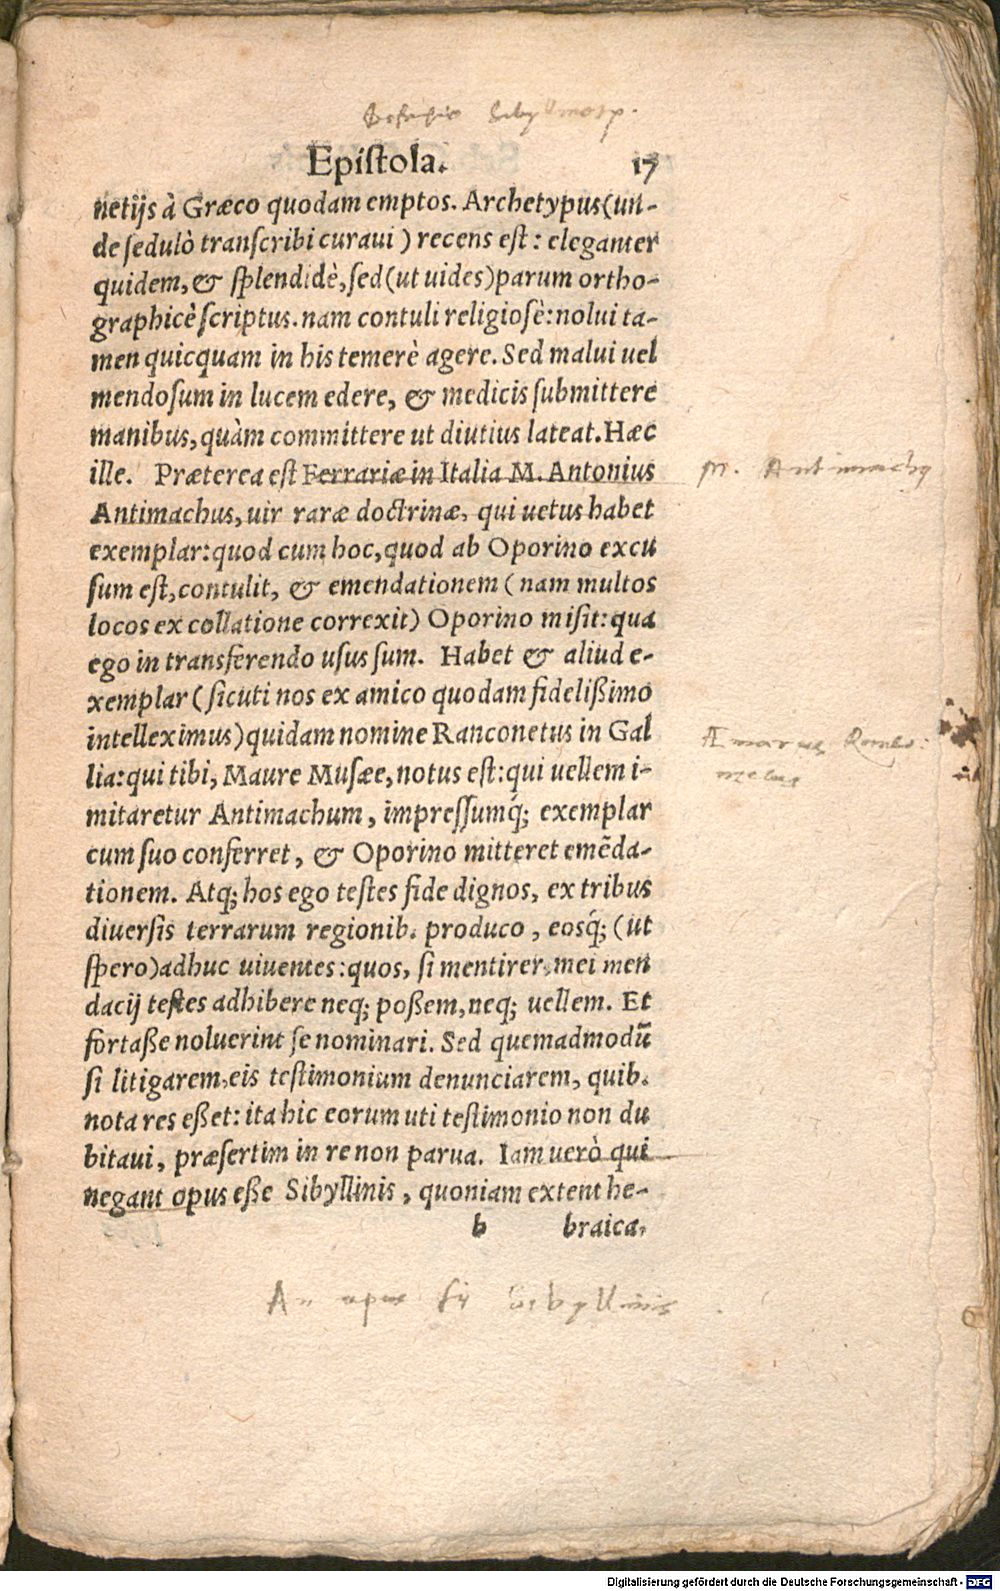 Epiſtola. 17
netijs à Græco quodam emptos. Archetypus(un-
de ſedulò tranſcribi curaui) recens eſt: eleganter
quidem, & ſplendidè, ſed(ut uides)parum ortho-
graphicè ſcriptus. nam contuli religioſè: nolui ta-
men quicquam in his temerè agere. Sed malui uel
mendoſum in lucem edere, & medicis ſubmittere
manibus, quàm committere ut diutius lateat. Hæc
ille. Præterea eſt Ferrariæ in Italia M. Antonius
M. Antimachꝰ
Antimachus, uir raræ doctrinæ, qui uetus habet
exemplar: quod cum hoc, quod ab Oporino excu
ſum eſt, contulit, & emendationem (nam multos
locos ex collatione correxit) Oporino miſit: qua
ego in transferendo uſus ſum. Habet & aliud e-
xemplar (ſicuti nos ex amico quodam fidelißimo
intelleximus) quidam nomine Ranconetus in Gal
lia: qui tibi, Maure Muſæe, notus eſt: qui uellem i-
mitaretur Antimachum, impreſſumq́; exemplar
cum ſuo conferret, & Oporino mitteret emẽda-
tionem. Atq; hos ego teſtes fide dignos, ex tribus
diuerſis terrarum regionib. produco, eosq́; (ut
ſpero)adhuc uiuentes: quos, ſi mentirer, mei men
dacij teſtes adhibere neq; poßem, neq; uellem. Et
fortaße noluerint ſe nominari. Sed quemadmodũ
ſi litigarem, eis teſtimonium denunciarem, quib.
nota res eßet: ita hic eorum uti teſtimonio non du
bitaui, præſertim in re non parua. Iam uerò qui
negant opus eße Sibyllinis, quoniam extent he-
b braica,
An opus ſit Sibyllinis
Digitalisierung gefördert durch die Deutsche Forschungsgemeinschaft - DFG